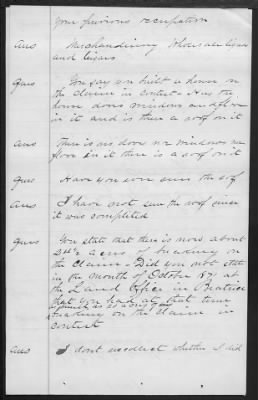 your previous occupation
Ans Merchandising Wholesale liquor
and cigars
Ques You say you built a house on
the claim in contest – Has the
house doors windows and floor
in it and is there a roof on it
Ans There is no door nor windows nor
floor in it there is a roof on it
Ques Have you ever seen the roof
Ans I have not seen the roof since
it was completed
Ques You state that there is now about
2 1/2 acres breaking on
the claim – Did you not state
in the month of October 187 at
the Land Office in Beatrice
that you had at that time
as much as
breaking on the claim in
contest
Ans I dont recollect whether I did